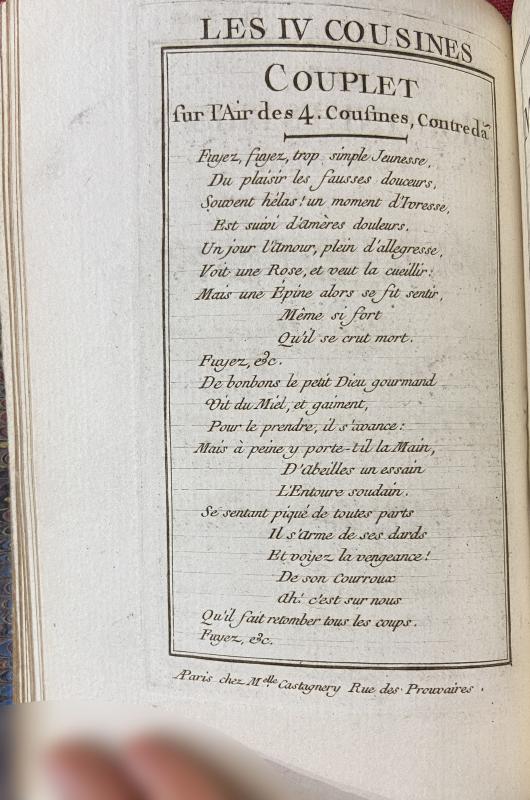 LES IV COUSINES
COUPLET
sur l'Air des 4. Cousines, Contredã
Fuyez, fuyez, trop simple Jeunesse,
Du plaisir les fausses douceurs,
Souvent hélas! un moment d'Ivresse,
Est suivi d'amères douleurs.
Un jour l'amour, plein d'allegresse,
Voit une Rose, et veut la cueillir:
Mais une Épine alors se fit sentir,
Même si fort
Qu'il se crut mort.
Fuyez, &c.
De bonbons le petit Dieu gourmand
Vit du Miel, et gaiment,
Pour le prendre, il s'avance:
Mais à peine y porte-t-il la Main,
D'abeilles un essain
L'Entoure soudain.
Se sentant piqué de toutes parts
Il s'arme de ses dards
Et voyez la vengeance!
De son Courroux
Ah! c'est sur nous
Qu'il fait retomber tous les coups.
Fuyez, &c.
A Paris chez M.elle Castagnery Rue des Prouvaires.